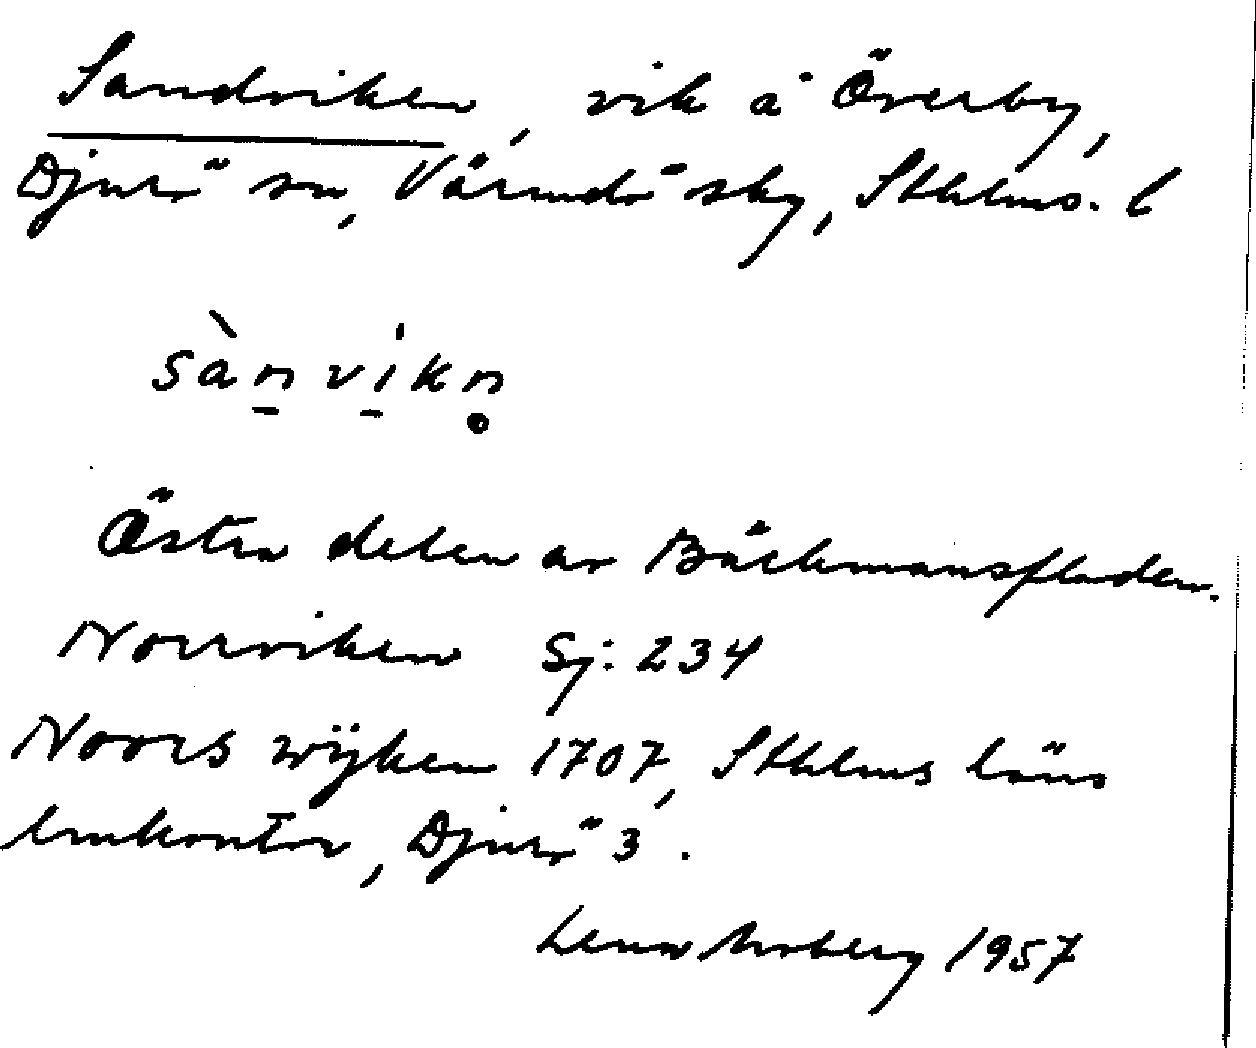 Sandviken, vik å Överby,
Djurö sn, Värmdö skg, Sthlms. l
sànvíkn
Östra delen av Bäckmansfladen.
Norrviken Sj: 234
Noors wijken 1707, Sthlms läns
lmkontor, Djurö 3.
Lena Moberg 1957